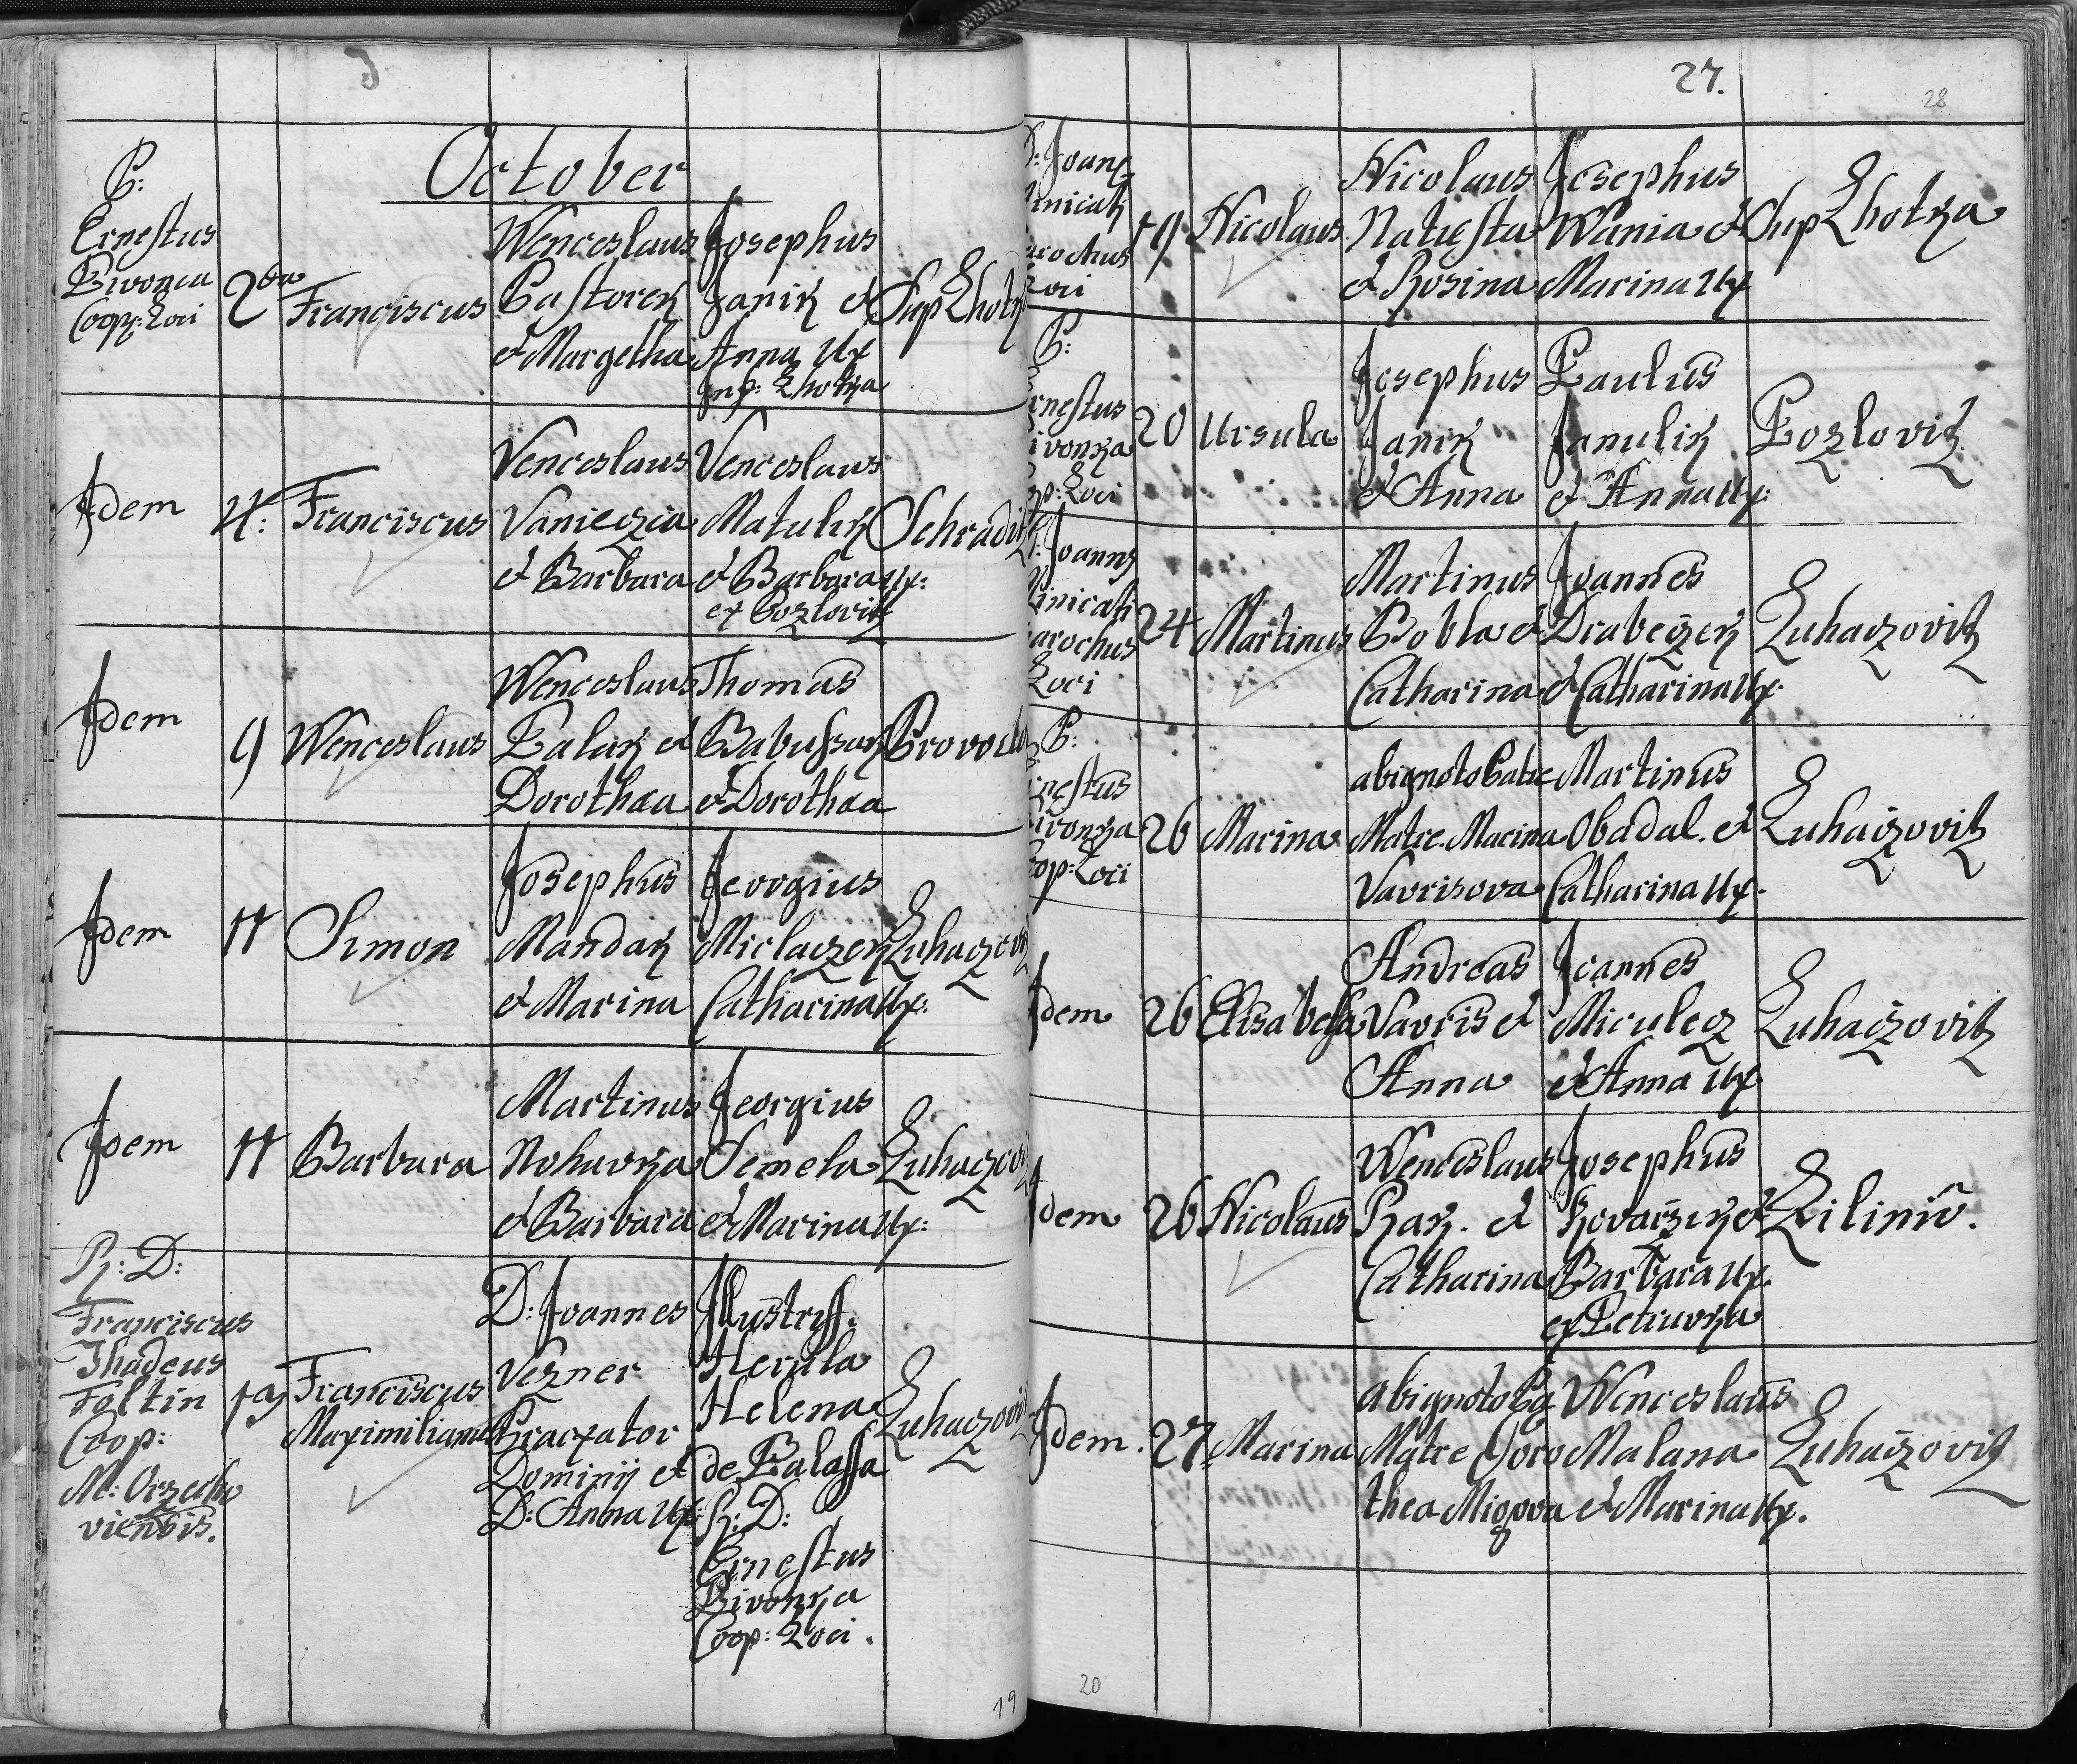 October
P:
Ernestus
Pivonca
Coop: Loci
2da
Franciscus
Wenceslaus
Pastorek
et Margetha
Josephus
Janik et
Anna Ux
Inf: Lhotka
Sup Lhotk
Idem
4:
Franciscus
Venceslaus
Vanieczca
et Barbara
Venceslaus
Matulik
et Barbara Ux:
ex Pozlovitz
Schradit
Idem
9
Wenceslaus
Wenceslaus
Palak et
Dorothaa
Thomas
Babussak
et Dorothaa
Provodo
Idem
11
Simon
Josephus
Mandak
et Marina
Jeorgius
Miclaczek
Catharina Ux:
Luhaczov
Idem
11
Barbara
Martinus
Nohavka
et Barbara
Jeorgius
Semela
et Marina Ux:
Luhaczov
R: D:
Franciscus
Thadeus
Foltin
Coop:
M: Orzecho
viensis.
19
Franciscus
Maximilianus
D: Joannes
Vezner
Dominij et
D: Anna Ux:
Illustriss:
Herula
Helena
de Balassa
R: D:
Ernestus
Pivonka
Coop: Loci.
Luhaczovi
19
27.
28
P: Joanes
inicati
arochus
Loci
19
Nicolaus
Nicolaus
Natiesta
et Rosina
Josephus
Wania et
Marina Ux
Sup Lhotka
P:
rnestus
ivonka
op: Loci
20
Ursula
Josephus
Janik
et Anna
Paulus
Janulik
et Anna Ux:
Pozlovitz
P: Joannes
inicati
arochus
Loci
24
Martinus
Martinus
Bobla et
Catharina
Joannes
Drabeczek
et Catharina Ux.
Luhaczovitz
P:
rnestus
ivonka
oop: Loci
26
Marina
ab ignoto Patre
Matre Marina
Vavrisova
Martinus
Obadal. et
Catharina Ux.
Luhaczovitz
Idem
26
Elisabetha
Andreas
Vavris et
Anna
Joannes
Miculecz
et Anna Ux
Luhaczovitz
Idem
26
Nicolaus
Wenceslaus
Rak. et
Catharina
Josephus
Kovarzik et
Barbara Ux.
ex Petruvka
Lilinio.
Idem.
27
Marina
ab ignoto Pa
Matre Doro
thea Migova
Wenceslaus
Malana
et Marina Ux.
Luhaczovitz
20